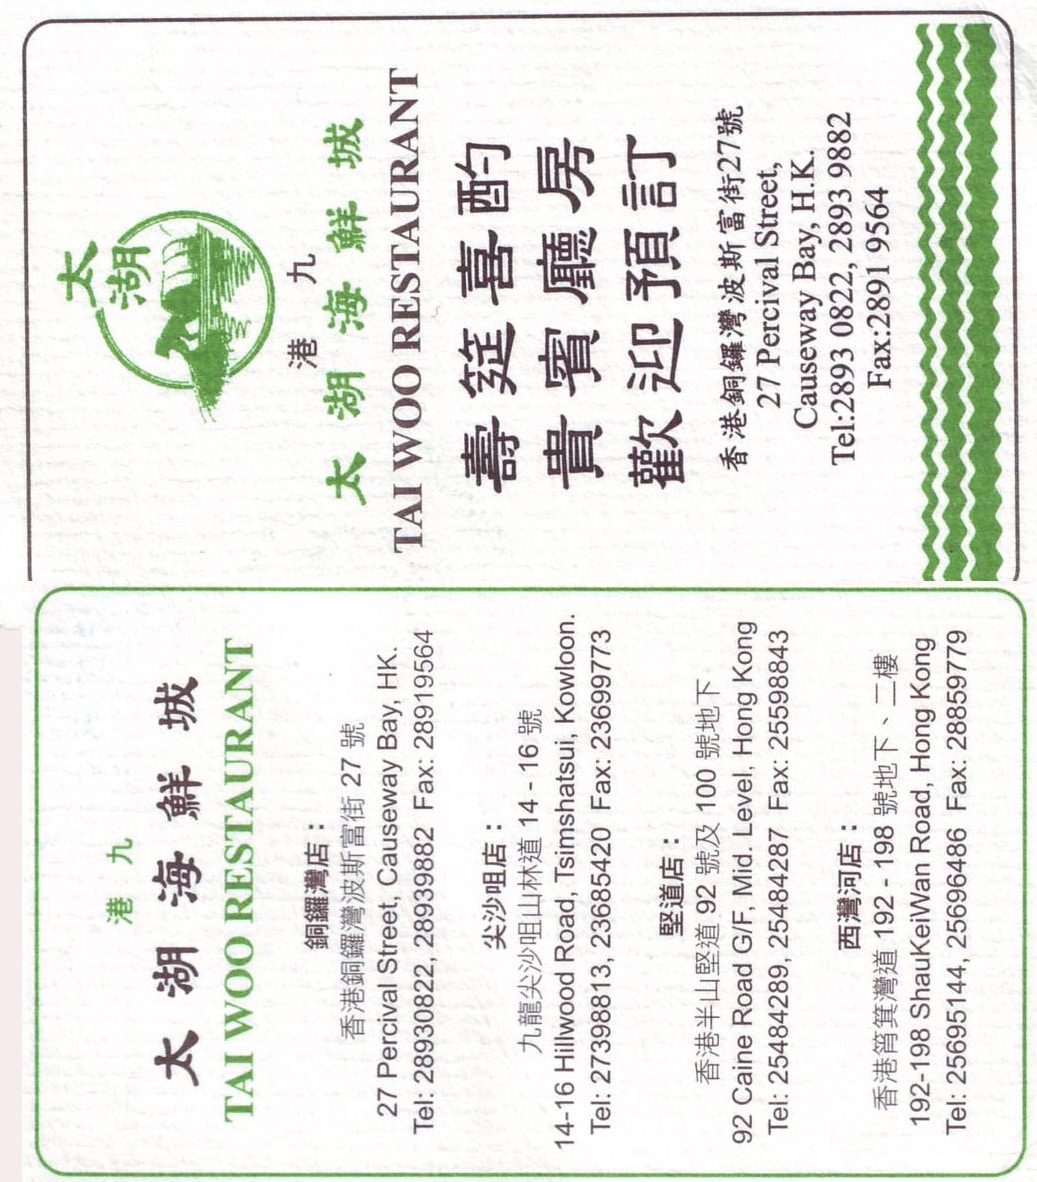 太湖
港九
太湖海鮮城
TAI WOO RESTAURANT
壽筵喜酌
貴賓廳房
歡迎預訂
香港銅鑼灣波斯富街27號
27 Percival Street,
Causeway Bay, H.K.
Tel:2893 0822, 2893 9882
Fax:2891 9564
港九
太湖海鮮城
TAI WOO RESTAURANT
銅鑼灣店：
香港銅鑼灣波斯富街 27 號
27 Percival Street, Causeway Bay, HK.
Tel: 28930822, 28939882 Fax: 28919564
尖沙咀店：
九龍尖沙咀山林道 14 - 16 號
14-16 Hillwood Road, Tsimshatsui, Kowloon.
Tel: 27398813, 23685420 Fax: 23699773
堅道店：
香港半山堅道 92 號及 100 號地下
92 Caine Road G/F, Mid Level, Hong Kong
Tel: 25484289, 25484287 Fax: 25598843
西灣河店：
香港筲箕灣道 192 - 198 號地下、二樓
192-198 ShauKeiWan Road, Hong Kong
Tel: 25695144, 25696486 Fax: 28859779